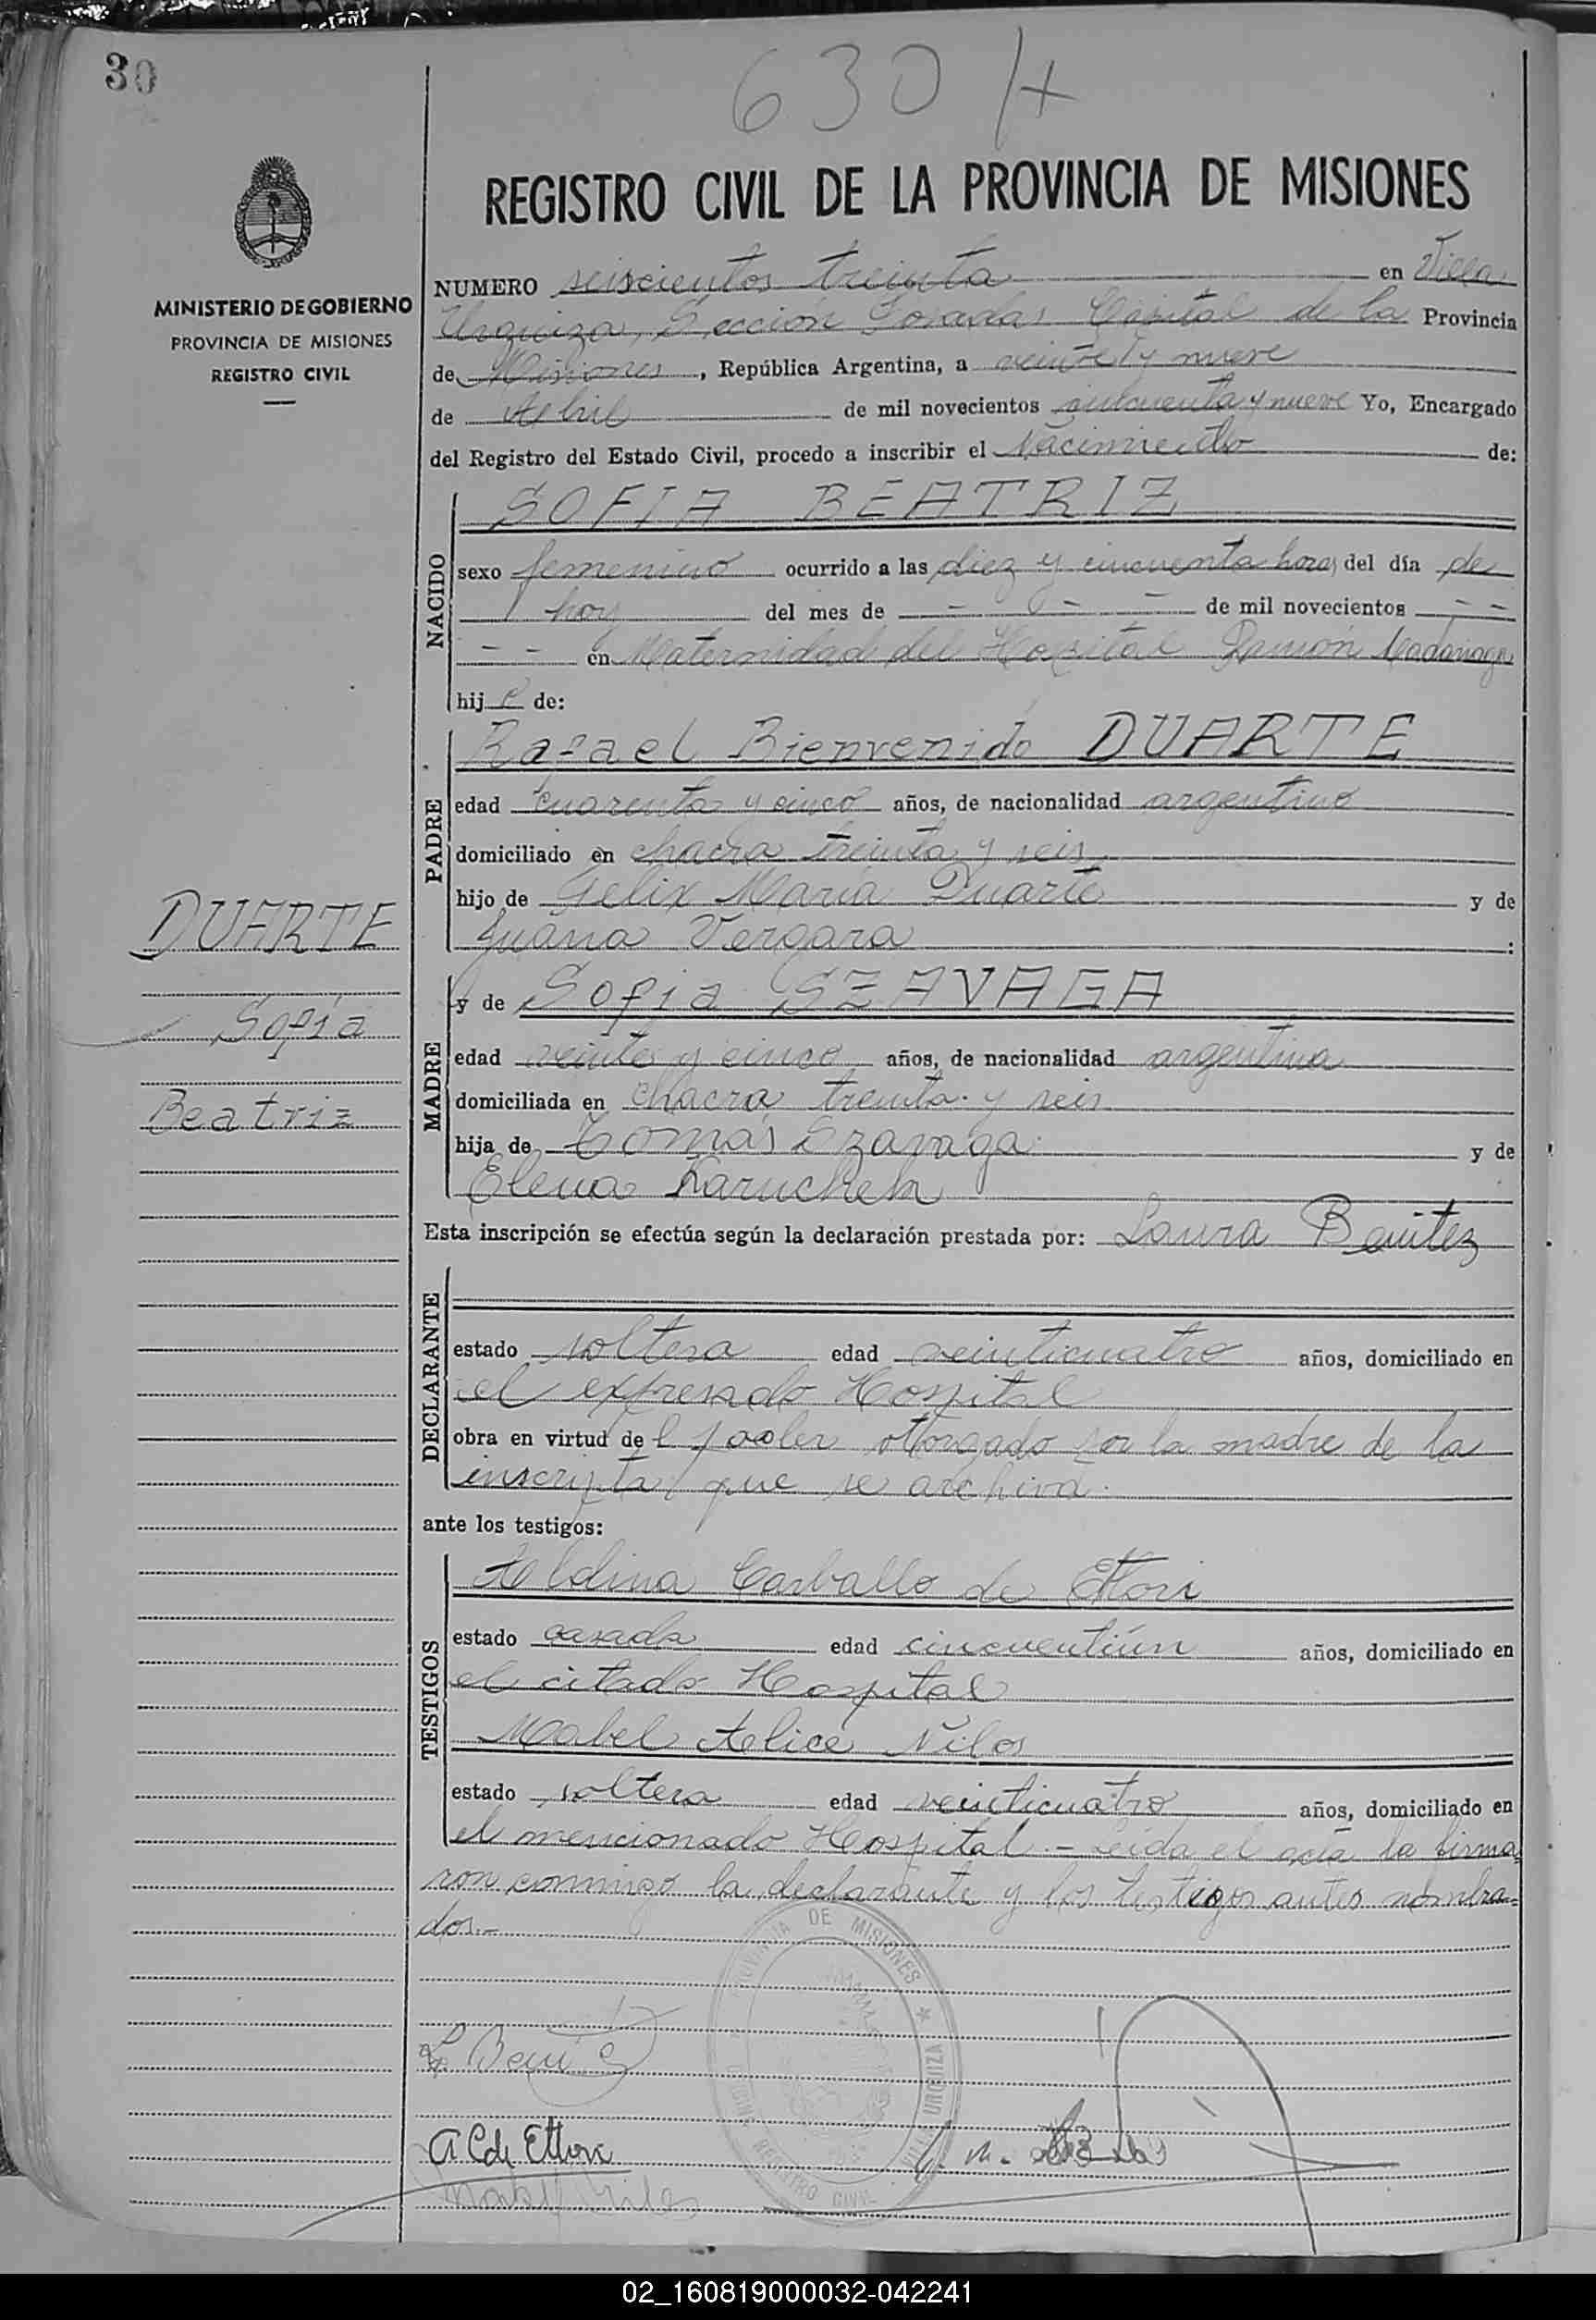 30
630 H
MINISTERIO DE GOBIERNO
PROVINCIA DE MISIONES
REGISTRO CIVIL
REGISTRO CIVIL DE LA PROVINCIA DE MISIONES
NUMERO seiscientos treinta en Villa
Urquiza, Sección Posadas Capital de la Provincia
de Misiones, República Argentina, a veinte y nueve
de Abril de mil novecientos cincuenta y nueve Yo, Encargado
del Registro del Estado Civil, procedo a inscribir el Nacimiento de:
NACIDO
SOFIA BEATRIZ
sexo femenino ocurrido a las diez y cincuenta horas del día de
hoy del mes de - - - de mil novecientos - -
- - en Maternidad del Hospital Ramón Madariaga
hij a de:
PADRE
Rafael Bienvenido DUARTE
edad cuarenta y cinco años, de nacionalidad argentino
domiciliado en chacra treinta y seis
hijo de Felix María Duarte y de
Juana Vergara :
DUARTE
Sofía
Beatriz
MADRE
y de Sofia SZAVAGA
edad veinte y cinco años, de nacionalidad argentina
domiciliada en chacra treinta y seis
hija de Tomás Szavaga y de
Elena Karuchek
Esta inscripción se efectúa según la declaración prestada por: Laura Benitez
DECLARANTE
estado soltera edad veinticuatro años, domiciliado en
el expresado Hospital
obra en virtud de l poder otorgado por la madre de la
inscripta que se archiva.
ante los testigos:
TESTIGOS
Aldina Carballo de Ettori
estado casada edad cincuentiún años, domiciliado en
el citado Hospital
Mabel Alice Nilos
estado soltera edad veinticuatro años, domiciliado en
el mencionado Hospital.- Leída el acta la firma
ron conmigo la declarante y los testigos antes nombra=
dos.-
PROVINCIA DE MISIONES
VILLA URQUIZA
REGISTRO CIVIL
L. Benitez
A C de Ettori
02_160819000032-042241